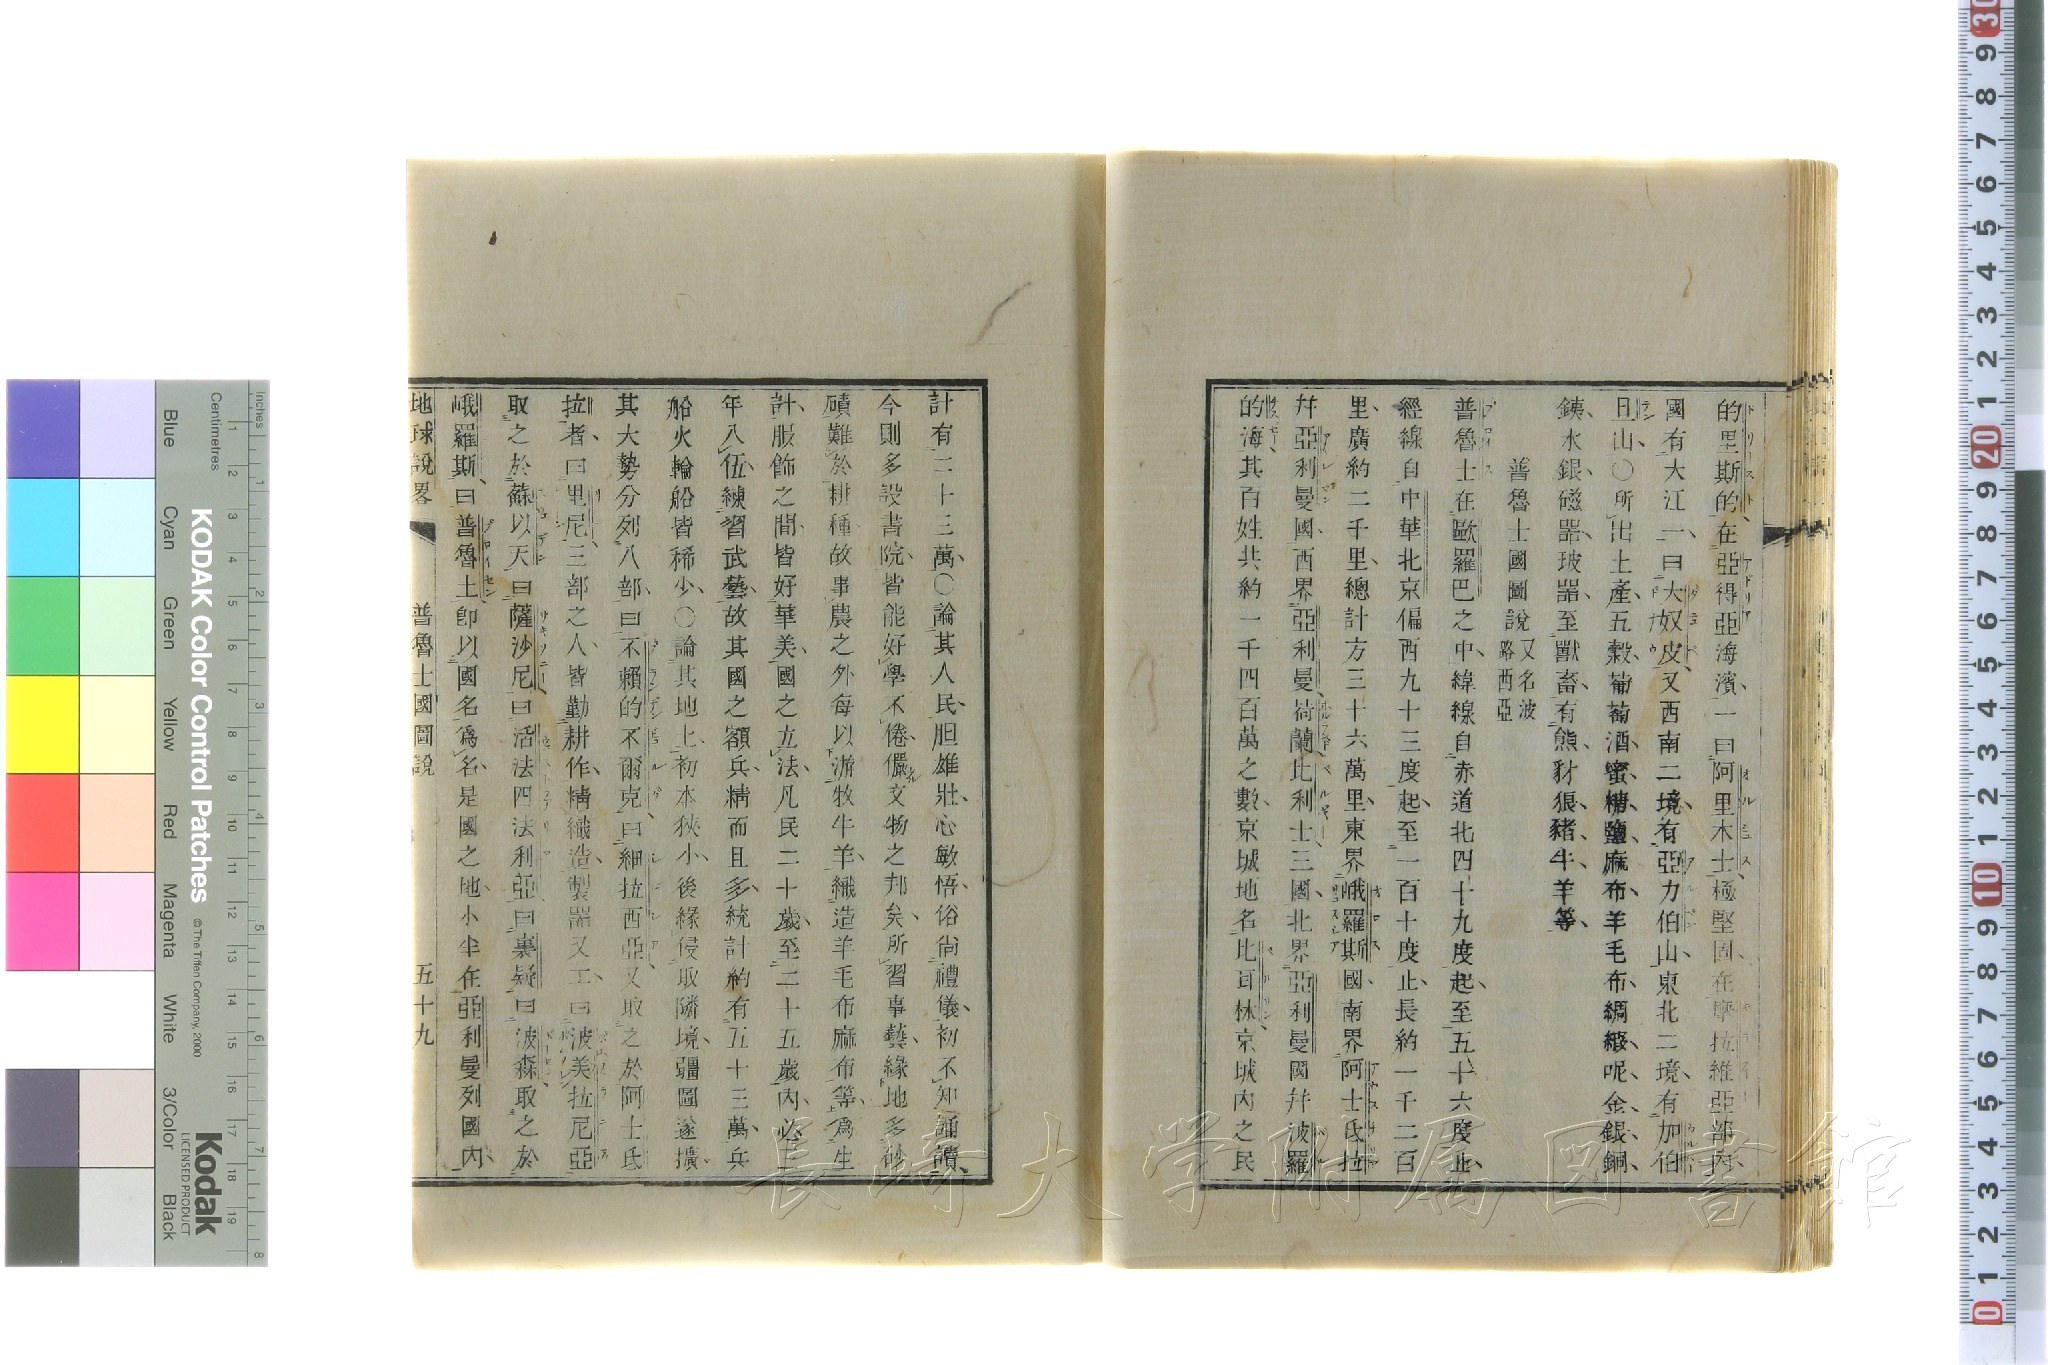 的里斯的在亞得亞海濱一曰阿里木士極堅固在摩拉維亞部內
國有大江一曰大奴皮又西南二境有亞力伯山東北二境有加伯
旦山〇所出土產五穀葡萄酒蜜糖鹽麻布羊毛布綢緞呢金銀銅
銕水銀磁器玻器至獸畜有熊豺狼豬牛羊等
普魯士國圖說 又名波路西亞
普魯士在歐羅巴之中緯線自赤道北四十九度起至五十六度止
經線自中華北京偏西九十三度起至一百十度止長約一千二百
里廣約二千里總計方三十六萬里東界峨羅斯國南界阿士氐拉
幷亞利曼國西界亞利曼荷蘭比利士三國北界亞利曼國幷波羅
的海其百姓共約一千四百萬之數京城地名比耳林京城內之民
計有二十三萬〇論其人民胆雄壯心敏悟俗尙禮儀初不知誦讀
今則多設書院皆能好學不倦儼文物之邦矣所習事藝緣地多砂
磧難於耕種故事農之外每以游牧牛羊織造羊毛布麻布等爲生
計服飾之間皆好華美國之立法凡民二十歲至二十五歲內必三
年入伍練習武藝故其國之額兵精而且多統計約有五十三萬兵
船火輪船皆稀少〇論其地土初本狹小後緣侵取隣境疆圖遂擴
其大勢分列八部曰不賴的不爾克曰細拉西亞又取之於阿士氐
拉者曰里尼三部之人皆勤耕作精織造製器又工曰波美拉尼亞
取之於蘇以天曰薩沙尼曰活法四法利亞曰裏疑曰波森取之於
峨羅斯曰普魯士卽以國名爲名是國之地小半在亞利曼列國內
地球說畧
普魯士國圖說
五十九
KODAK Color Control Patches
© The Tiffen Company, 2000
Kodak
LICENSED PRODUCT
Inches
Centimetres
Blue Cyan Green Yellow Red Magenta White 3/Color Black
長崎大学附属図書館